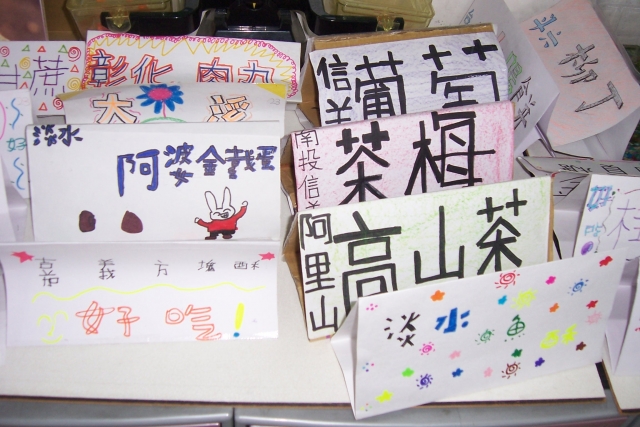 甘蔗
彰化 肉丸
大溪
淡水
阿婆鐵蛋
嘉義方塊酥
好吃!
葡萄
南投信
茶梅
阿里山
高山茶
淡水魚
柳丁